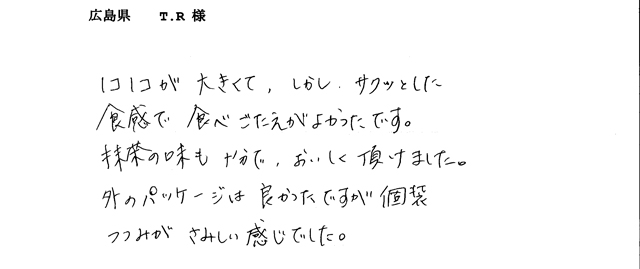 広島県　T.R 様
1コ1コが 大きくて、しかし サクッとした
食感で 食べごたえがよかったです。
抹茶の味も 十分で、おいしく 頂けました。
外のパッケージは 良かったですが 個装
つつみが さみしい 感じでした。